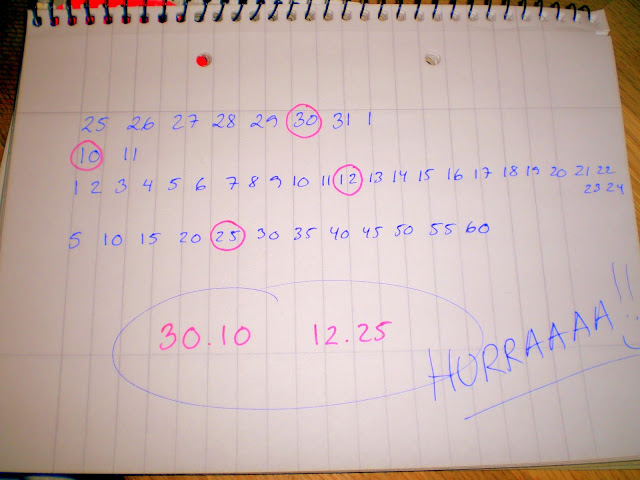 25 26 27 28 29 30 31 1
10 11
1 2 3 4 5 6 7 8 9 10 11 12 13 14 15 16 17 18 19 20 21 22
23 24
5 10 15 20 25 30 35 40 45 50 55 60
30.10 12.25
HURRAAAA!!